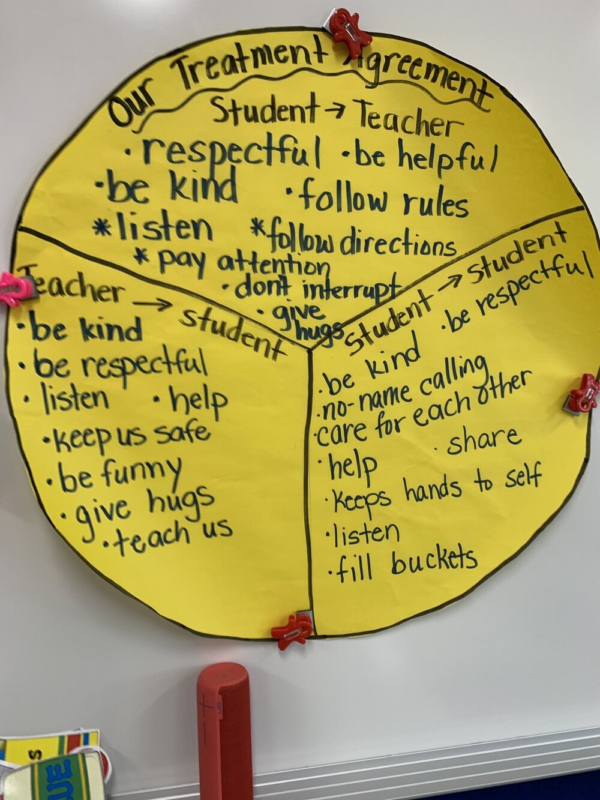 Our Treatment Agreement
Student → Teacher
• respectful • be helpful
• be kind • follow rules
* listen * follow directions
* pay attention
• dont interrupt
• give hugs
Teacher → student
• be kind
• be respectful
• listen • help
• keep us safe
• be funny
• give hugs
• teach us
Student → Student
• be respectful
• be kind
• no-name calling
• care for each other
• help • share
• keeps hands to self
• listen
• fill buckets